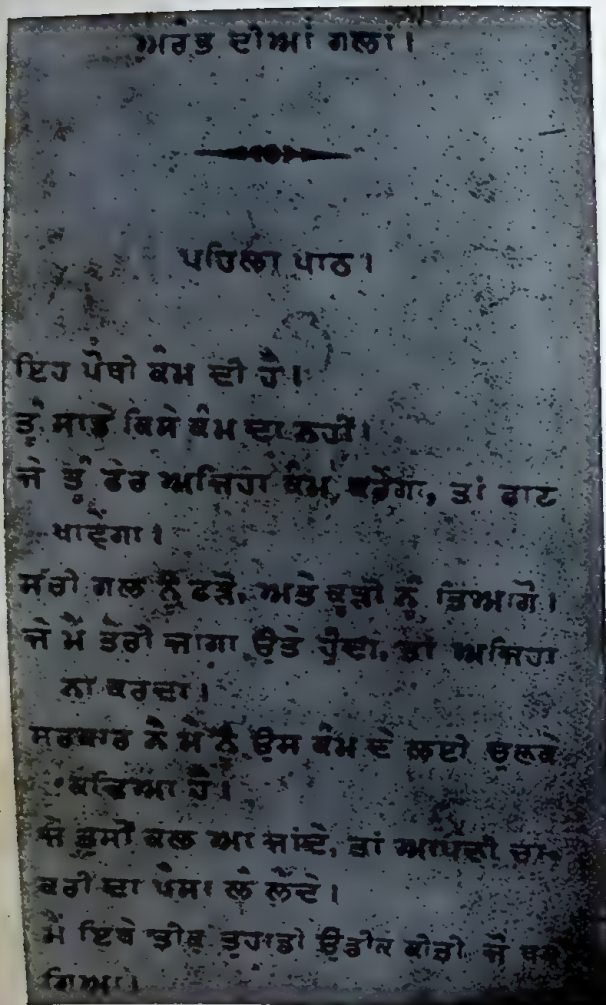 ਅਰੰਭ ਦੀਆਂ ਗਲਾਂ।
ਪਹਿਲਾ ਪਾਠ।
ਇਹ ਪੋਥੀ ਕੰਮ ਦੀ ਹੈ।
ਤੂੰ ਸਾਡੇ ਕਿਸੇ ਕੰਮ ਦਾ ਨਹੀਂ।
ਜੇ ਤੂੰ ਫੇਰ ਅਜਿਹਾ ਕੰਮ ਕਰੇਂਗਾ, ਤਾਂ ਫਾਟ
ਖਾਏਂਗਾ।
ਸੱਚੀ ਗਲ ਨੂੰ ਫੜੋ, ਅਤੇ ਕੂੜੀ ਨੂੰ ਤਿਆਗੋ।
ਜੇ ਮੈਂ ਤੇਰੀ ਜਾਗਾ ਉਤੇ ਹੁੰਦਾ, ਤਾਂ ਅਜਿਹਾ
ਨਾ ਕਰਦਾ।
ਸਰਕਾਰ ਨੇ ਮੈ ਨੂੰ ਉਸ ਕੰਮ ਦੇ ਲਈ ਚੁਣਕੇ
ਕਢਿਆ ਹੈ।
ਜੇ ਤੁਸੀਂ ਕਲ ਆ ਜਾਂਦੇ, ਤਾਂ ਆਪਣੀ ਚਾ-
ਕਰੀ ਦਾ ਪੈਸਾ ਲੈ ਲੈਂਦੇ।
ਮੈਂ ਇਥੇ ਤੀਕ ਤੁਹਾਡੀ ਉਡੀਕ ਕੀਤੀ, ਜੋ ਥਕ
ਗਿਆ।